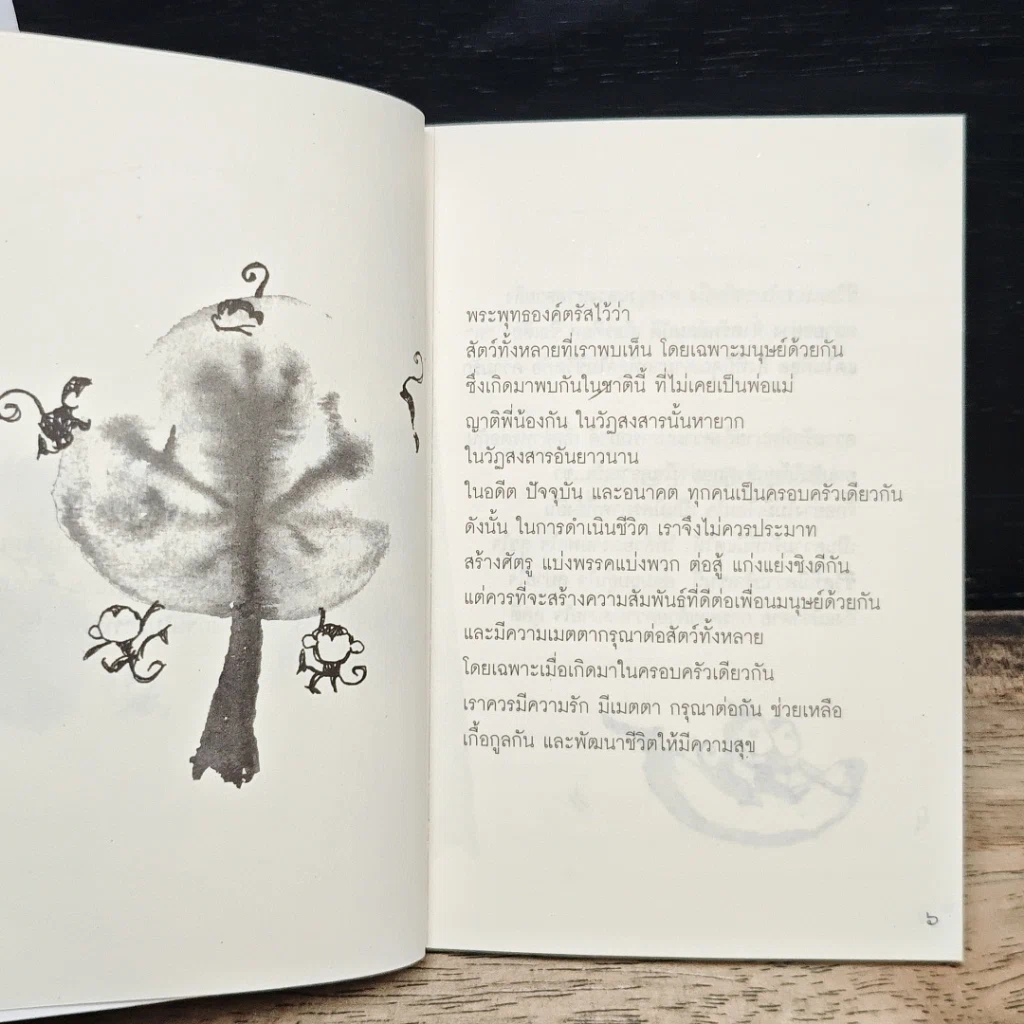 พระพุทธองค์ตรัสไว้ว่า
สัตว์ทั้งหลายที่เราพบเห็น โดยเฉพาะมนุษย์ด้วยกัน
ซึ่งเกิดมาพบกันในชาตินี้ ที่ไม่เคยเป็นพ่อแม่
ญาติพี่น้องกัน ในวัฏสงสารนั้นหายาก
ในวัฏสงสารอันยาวนาน
ในอดีต ปัจจุบัน และอนาคต ทุกคนเป็นครอบครัวเดียวกัน
ดังนั้น ในการดำเนินชีวิต เราจึงไม่ควรประมาท
สร้างศัตรู แบ่งพรรคแบ่งพวก ต่อสู้ แก่งแย่งชิงดีกัน
แต่ควรที่จะสร้างความสัมพันธ์ที่ดีต่อเพื่อนมนุษย์ด้วยกัน
และมีความเมตตากรุณาต่อสัตว์ทั้งหลาย
โดยเฉพาะเมื่อเกิดมาในครอบครัวเดียวกัน
เราควรมีความรัก มีเมตตา กรุณาต่อกัน ช่วยเหลือ
เกื้อกูลกัน และพัฒนาชีวิตให้มีความสุข
๖